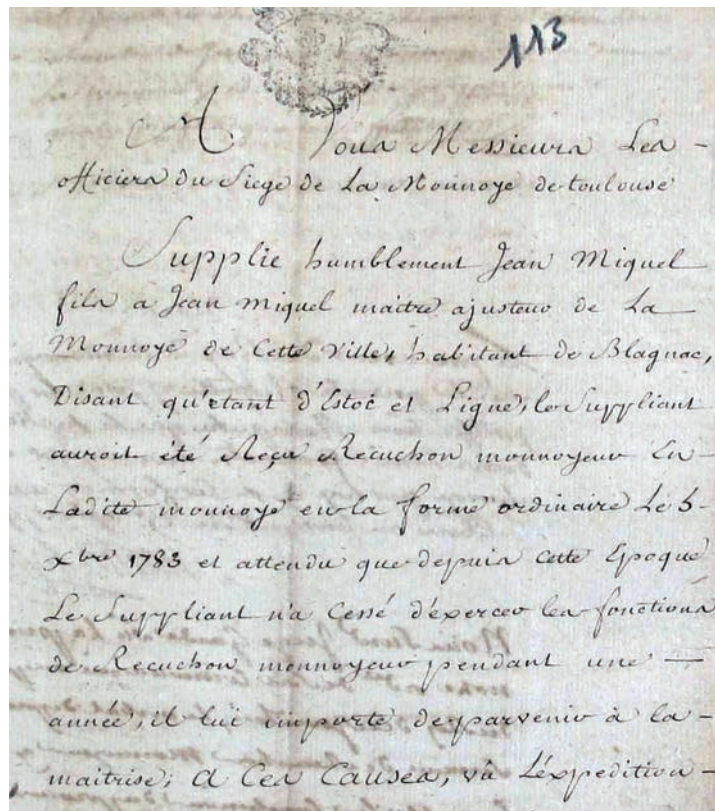 113
A Vous Messieurs Les -
officiers du Siege de La Monnoye de toulouse
Supplie humblement Jean Miquel
fils a Jean Miquel maitre ajusteur de La
Monnoye de Cette Ville, habitant de Blagnac,
Disant qu'etant d'Estoc et Ligne, le Suppliant
auroit été Reçu Recuchon monnoyeur En -
Ladite monnoye en la forme ordinaire Le 5 -
xbre 1783 et attendu que depuis cette Epoque
Le Suppliant n'a Cessé d'exercer les fonctions
de Recuchon monnoyeur pendant une —
année, il lui importe de parvenir à la -
maitrise; a Ces Causes, vû L'expedition -